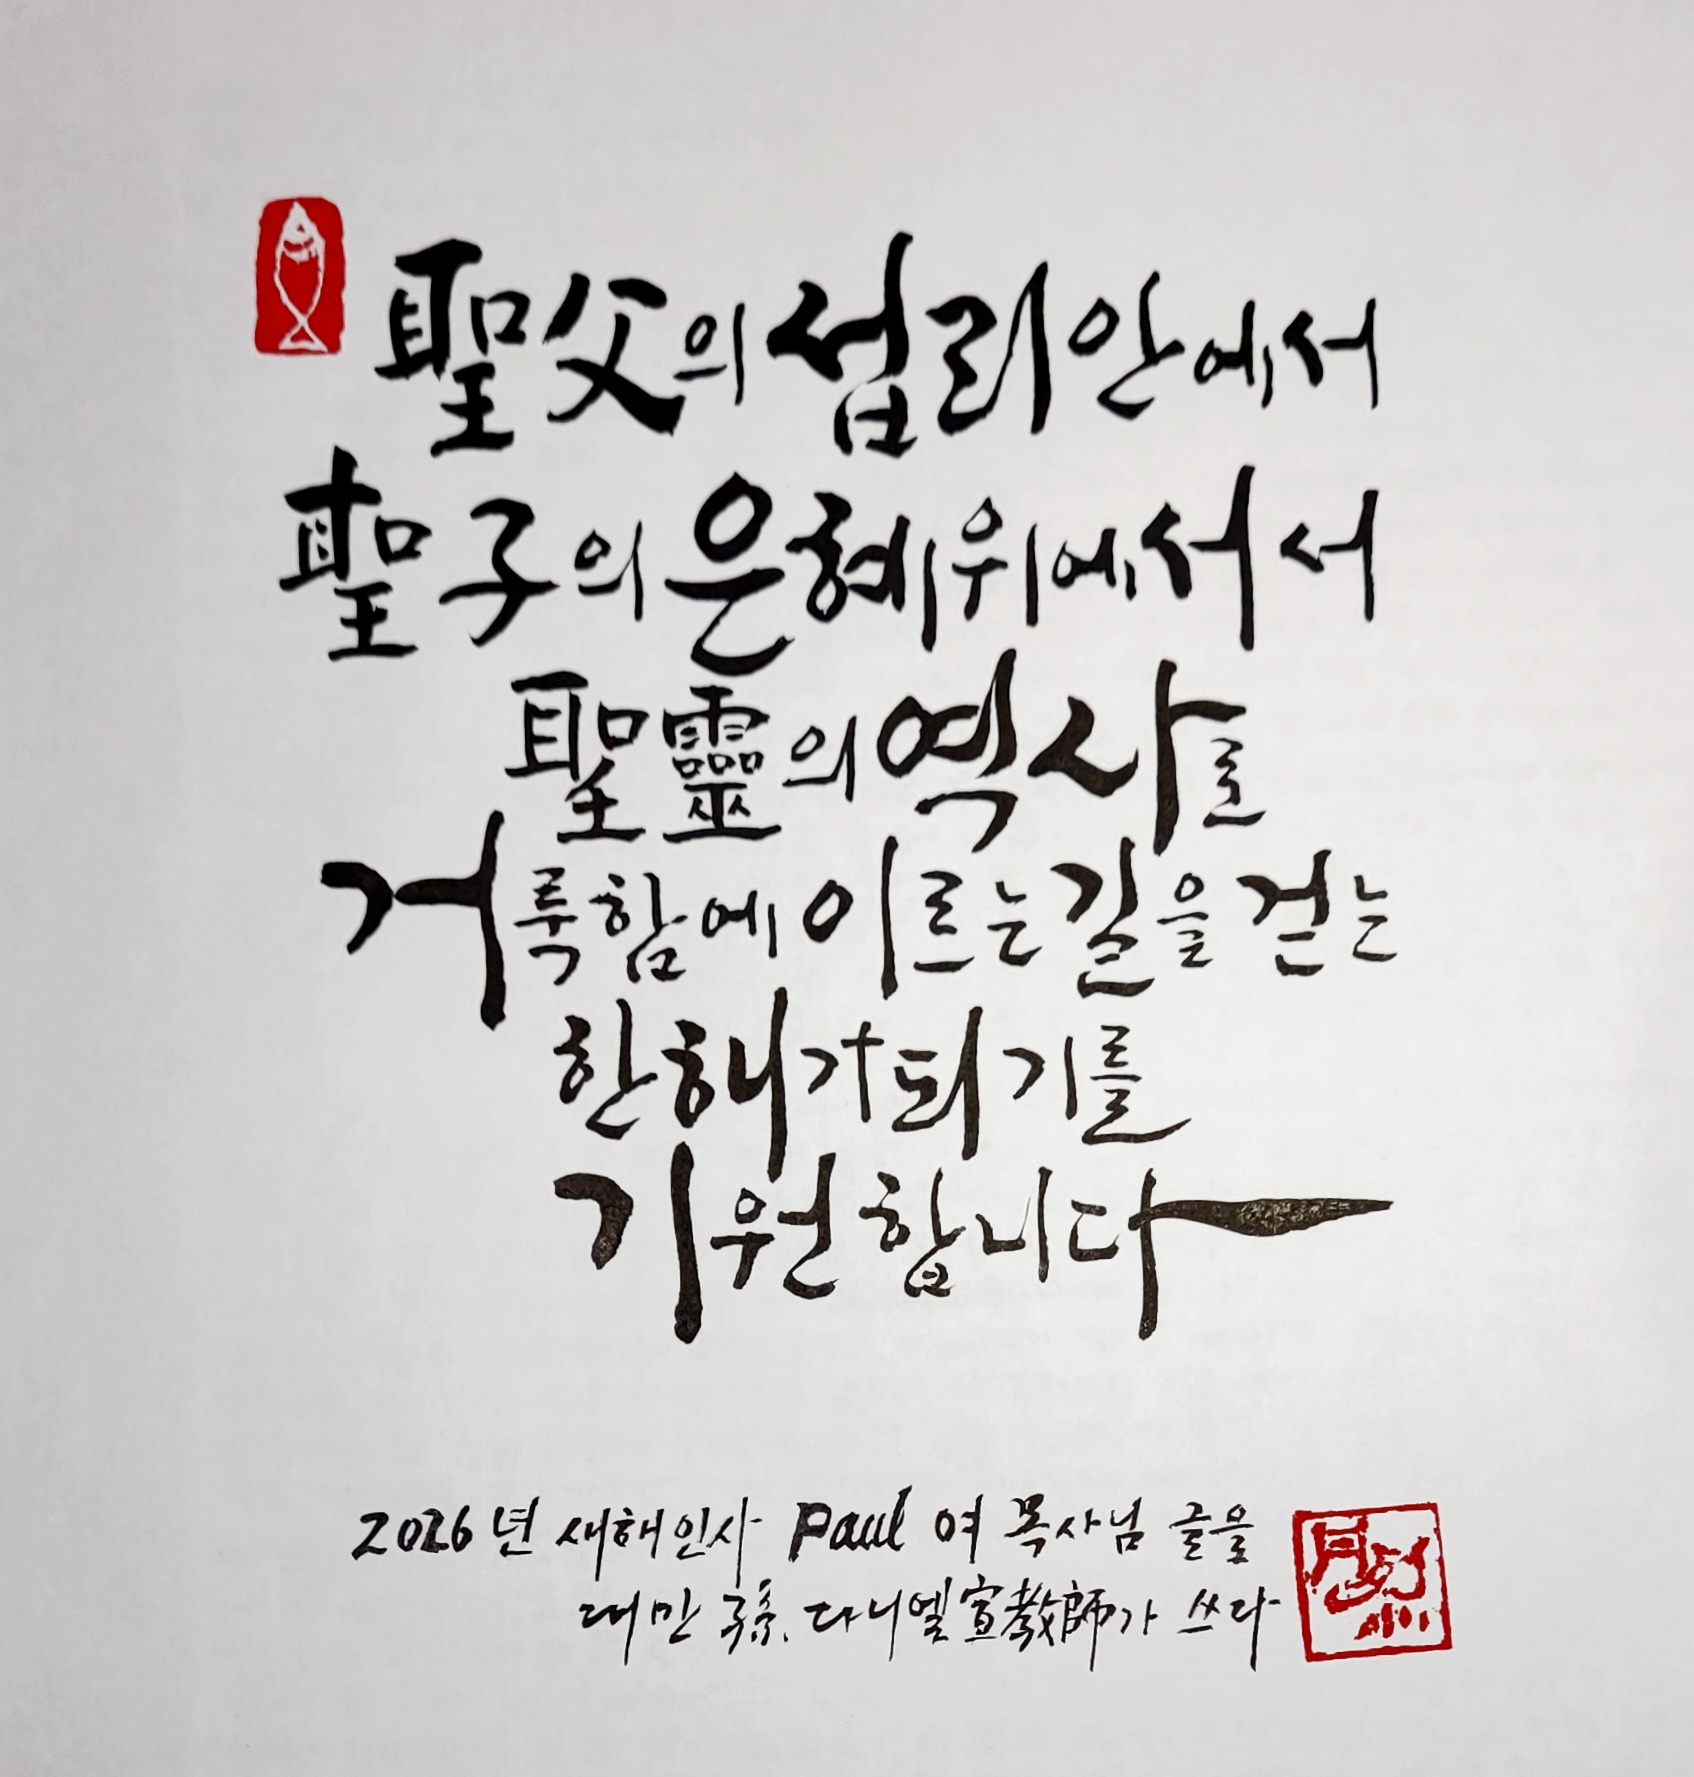 聖父의 섭리 안에서
聖子의 은혜 위에 서서
聖靈의 역사로
거룩함에 이르는 길을 걷는
한해가 되기를
기원합니다
2026년 새해인사 Paul 여 목사님 글을
대만 孫. 다니엘 宣教師가 쓰다